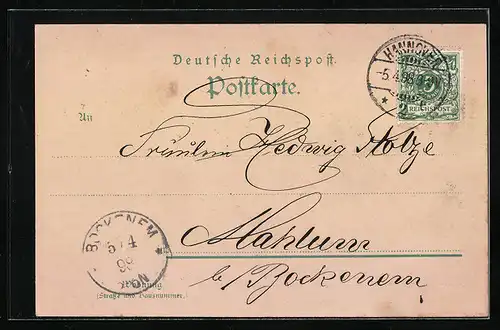 Deutsche Reichspost.
Postkarte.
HANNOVER
5.4.98
REICHSPOST
An
Fräulein Hedwig Stolze
Mahlum
b/Bockenem
BOCKENEM
5/4
98
Wohnung
(Straße und Hausnummer.)